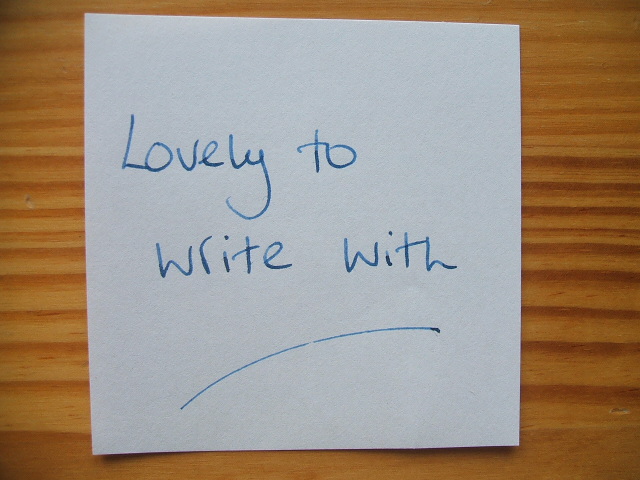 Lovely to
write with